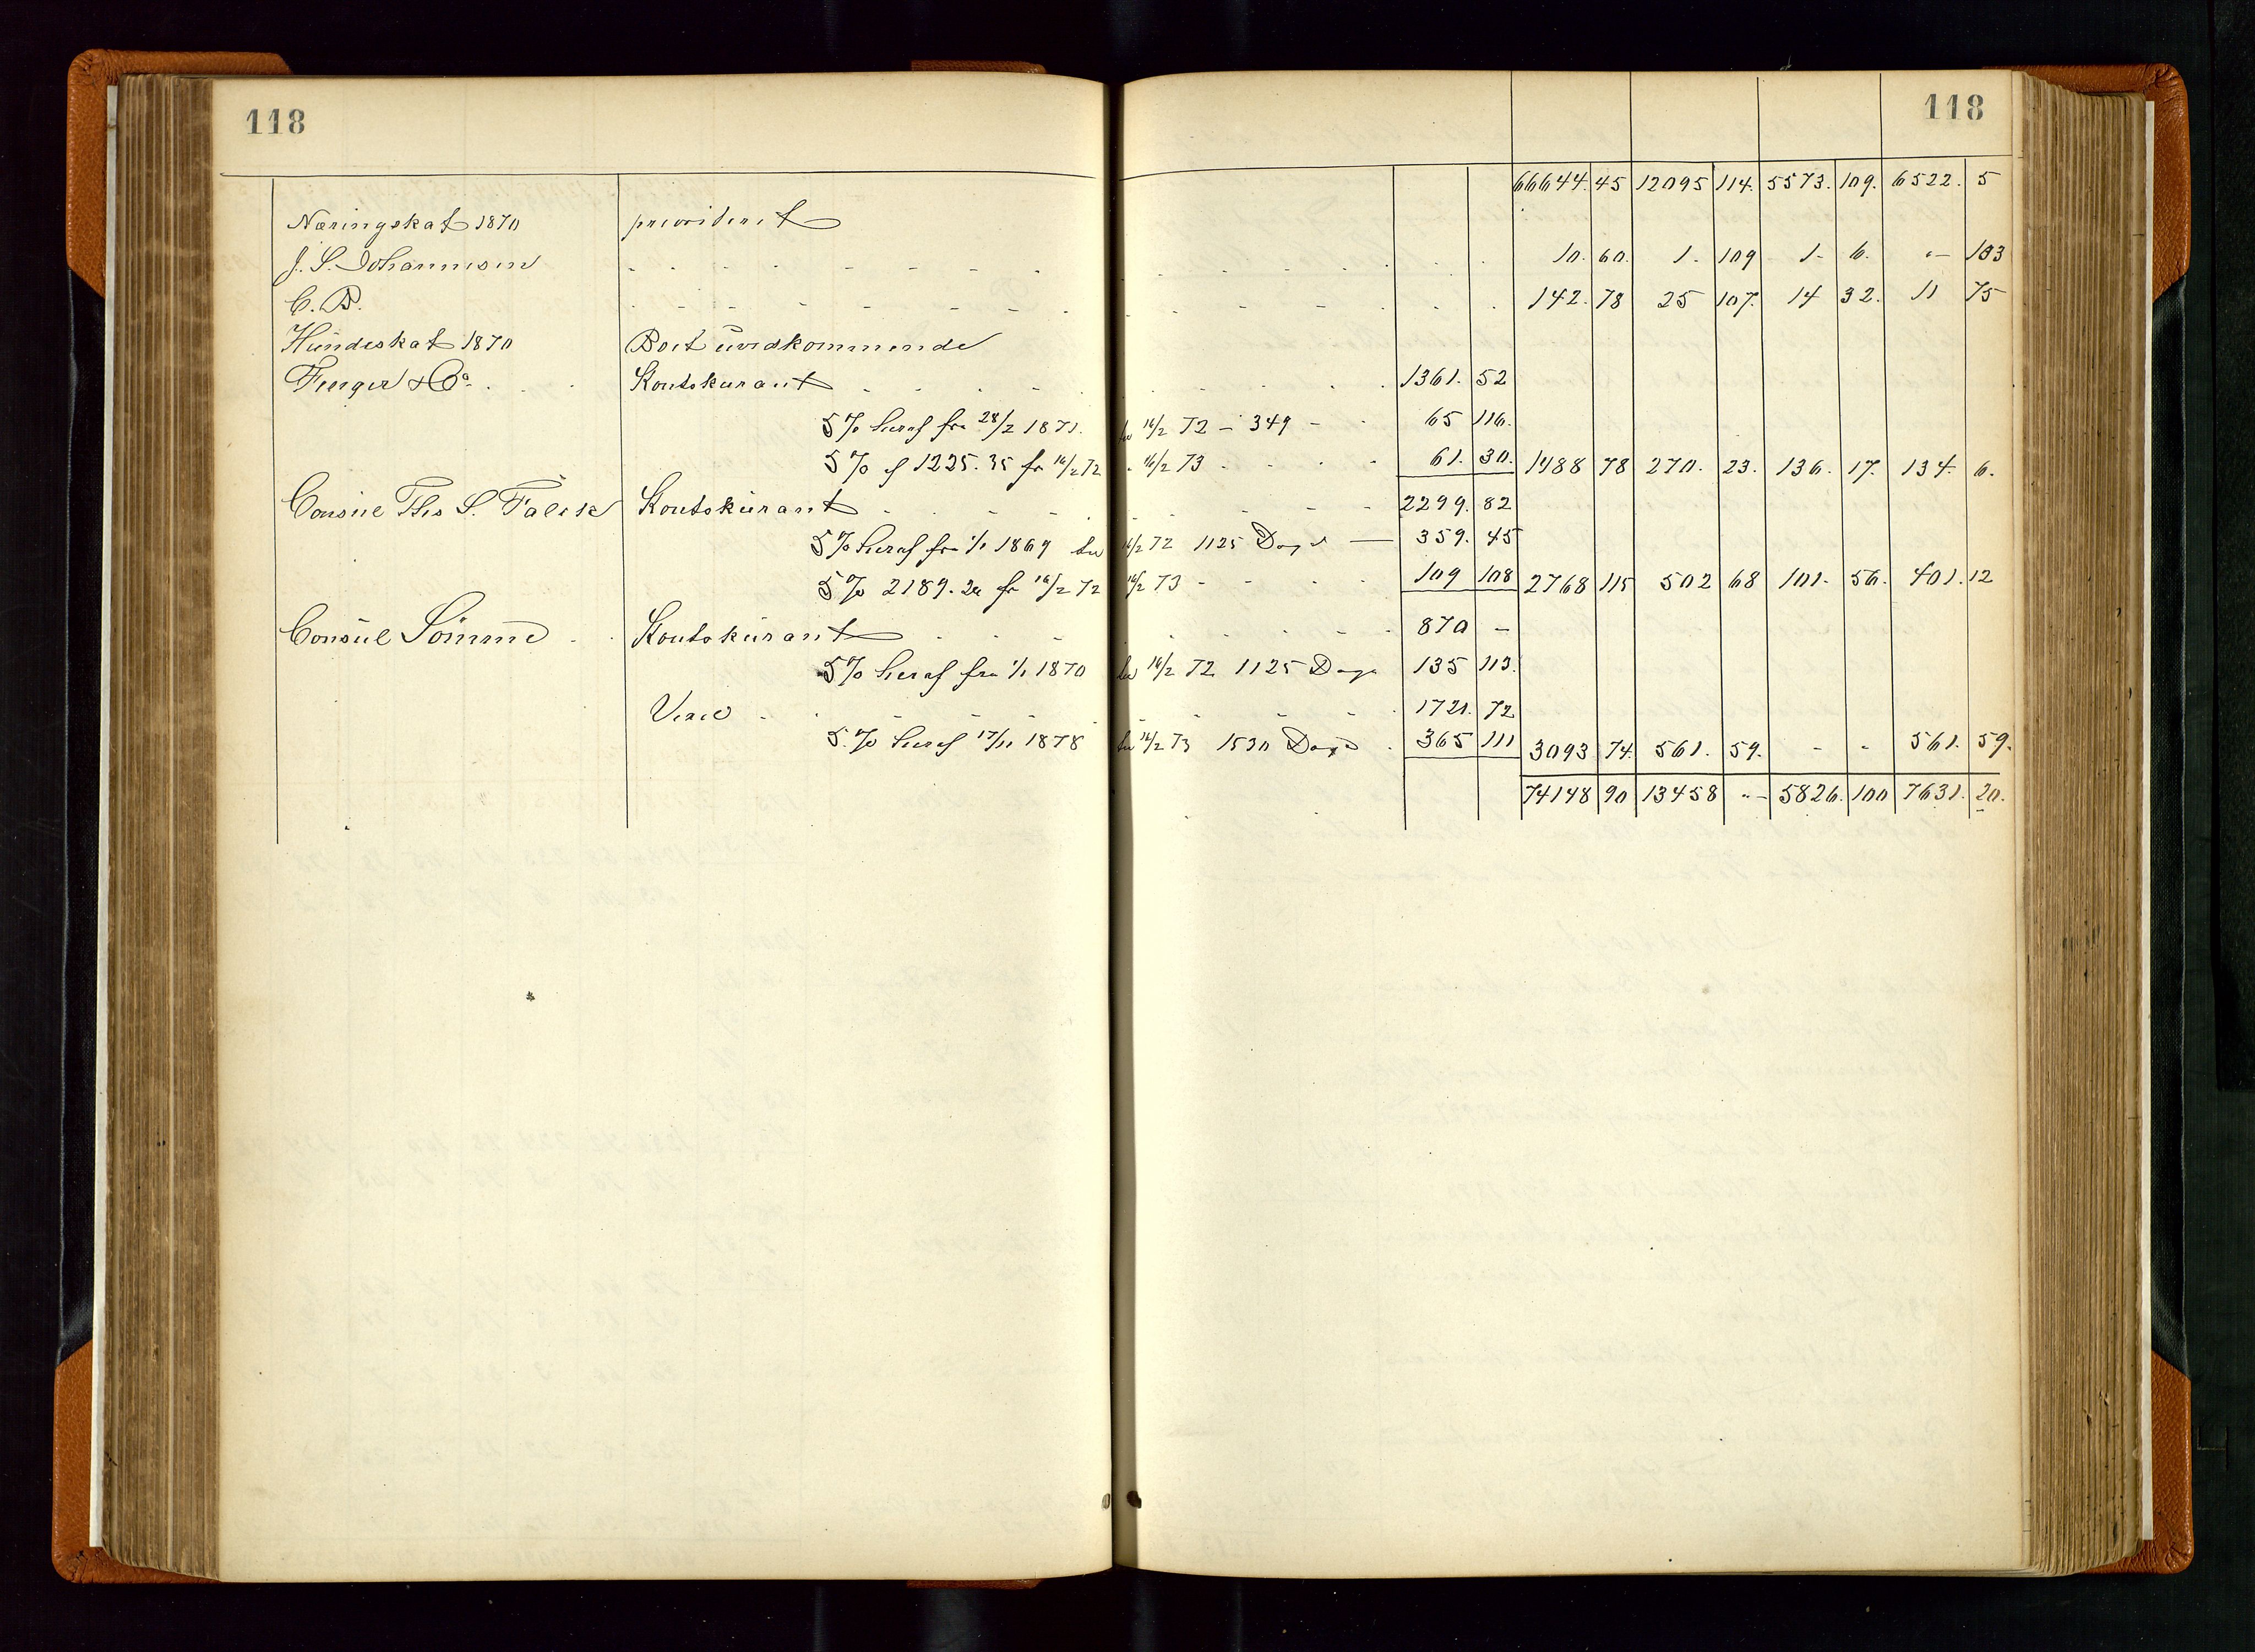 118 118
66644. 45 12095 114. 5573. 109. 6522. 5
Næringskat 1870 prioriteret
J. S. Johannesen 10. 60. 1. 109 1- 6. "- 103
C. B. 142. 78 25 107. 14 32. 11 75
Hundeskat 1870 Boet uvedkommende
Finger & Co. Kontokurant 1361. 52
5 % heraf fra 28/2 1871. til 16/2 72 - 349 - 65 116.
5 % af 1225. 35 fr 16/2 72 - 16/2 73 61. 30. 1488 78 270. 23. 136. 17. 134. 6.
Consul Ths S. Falck Kontokurant 2299. 82
5 % heraf fra 1/1 1869 til 16/2 72 1125 Dage — 359. 45
5 % 2189. 20 fr 16/2 72 16/2 73 - 109 108 2768 115 502 68 101. 56. 401. 12
Consul Sömme Kontokurant 870 -
5 % heraf fra 1/1 1870 til 16/2 72 1125 Dage 135 113.
Vexel 1721. 72
5. % heraf 17/11 1878 til 16/2 73 1530 Dage 365 111 3093 74. 561. 59. - - 561. 59.
74148 90 13458 "- 5826. 100 7631. 20.